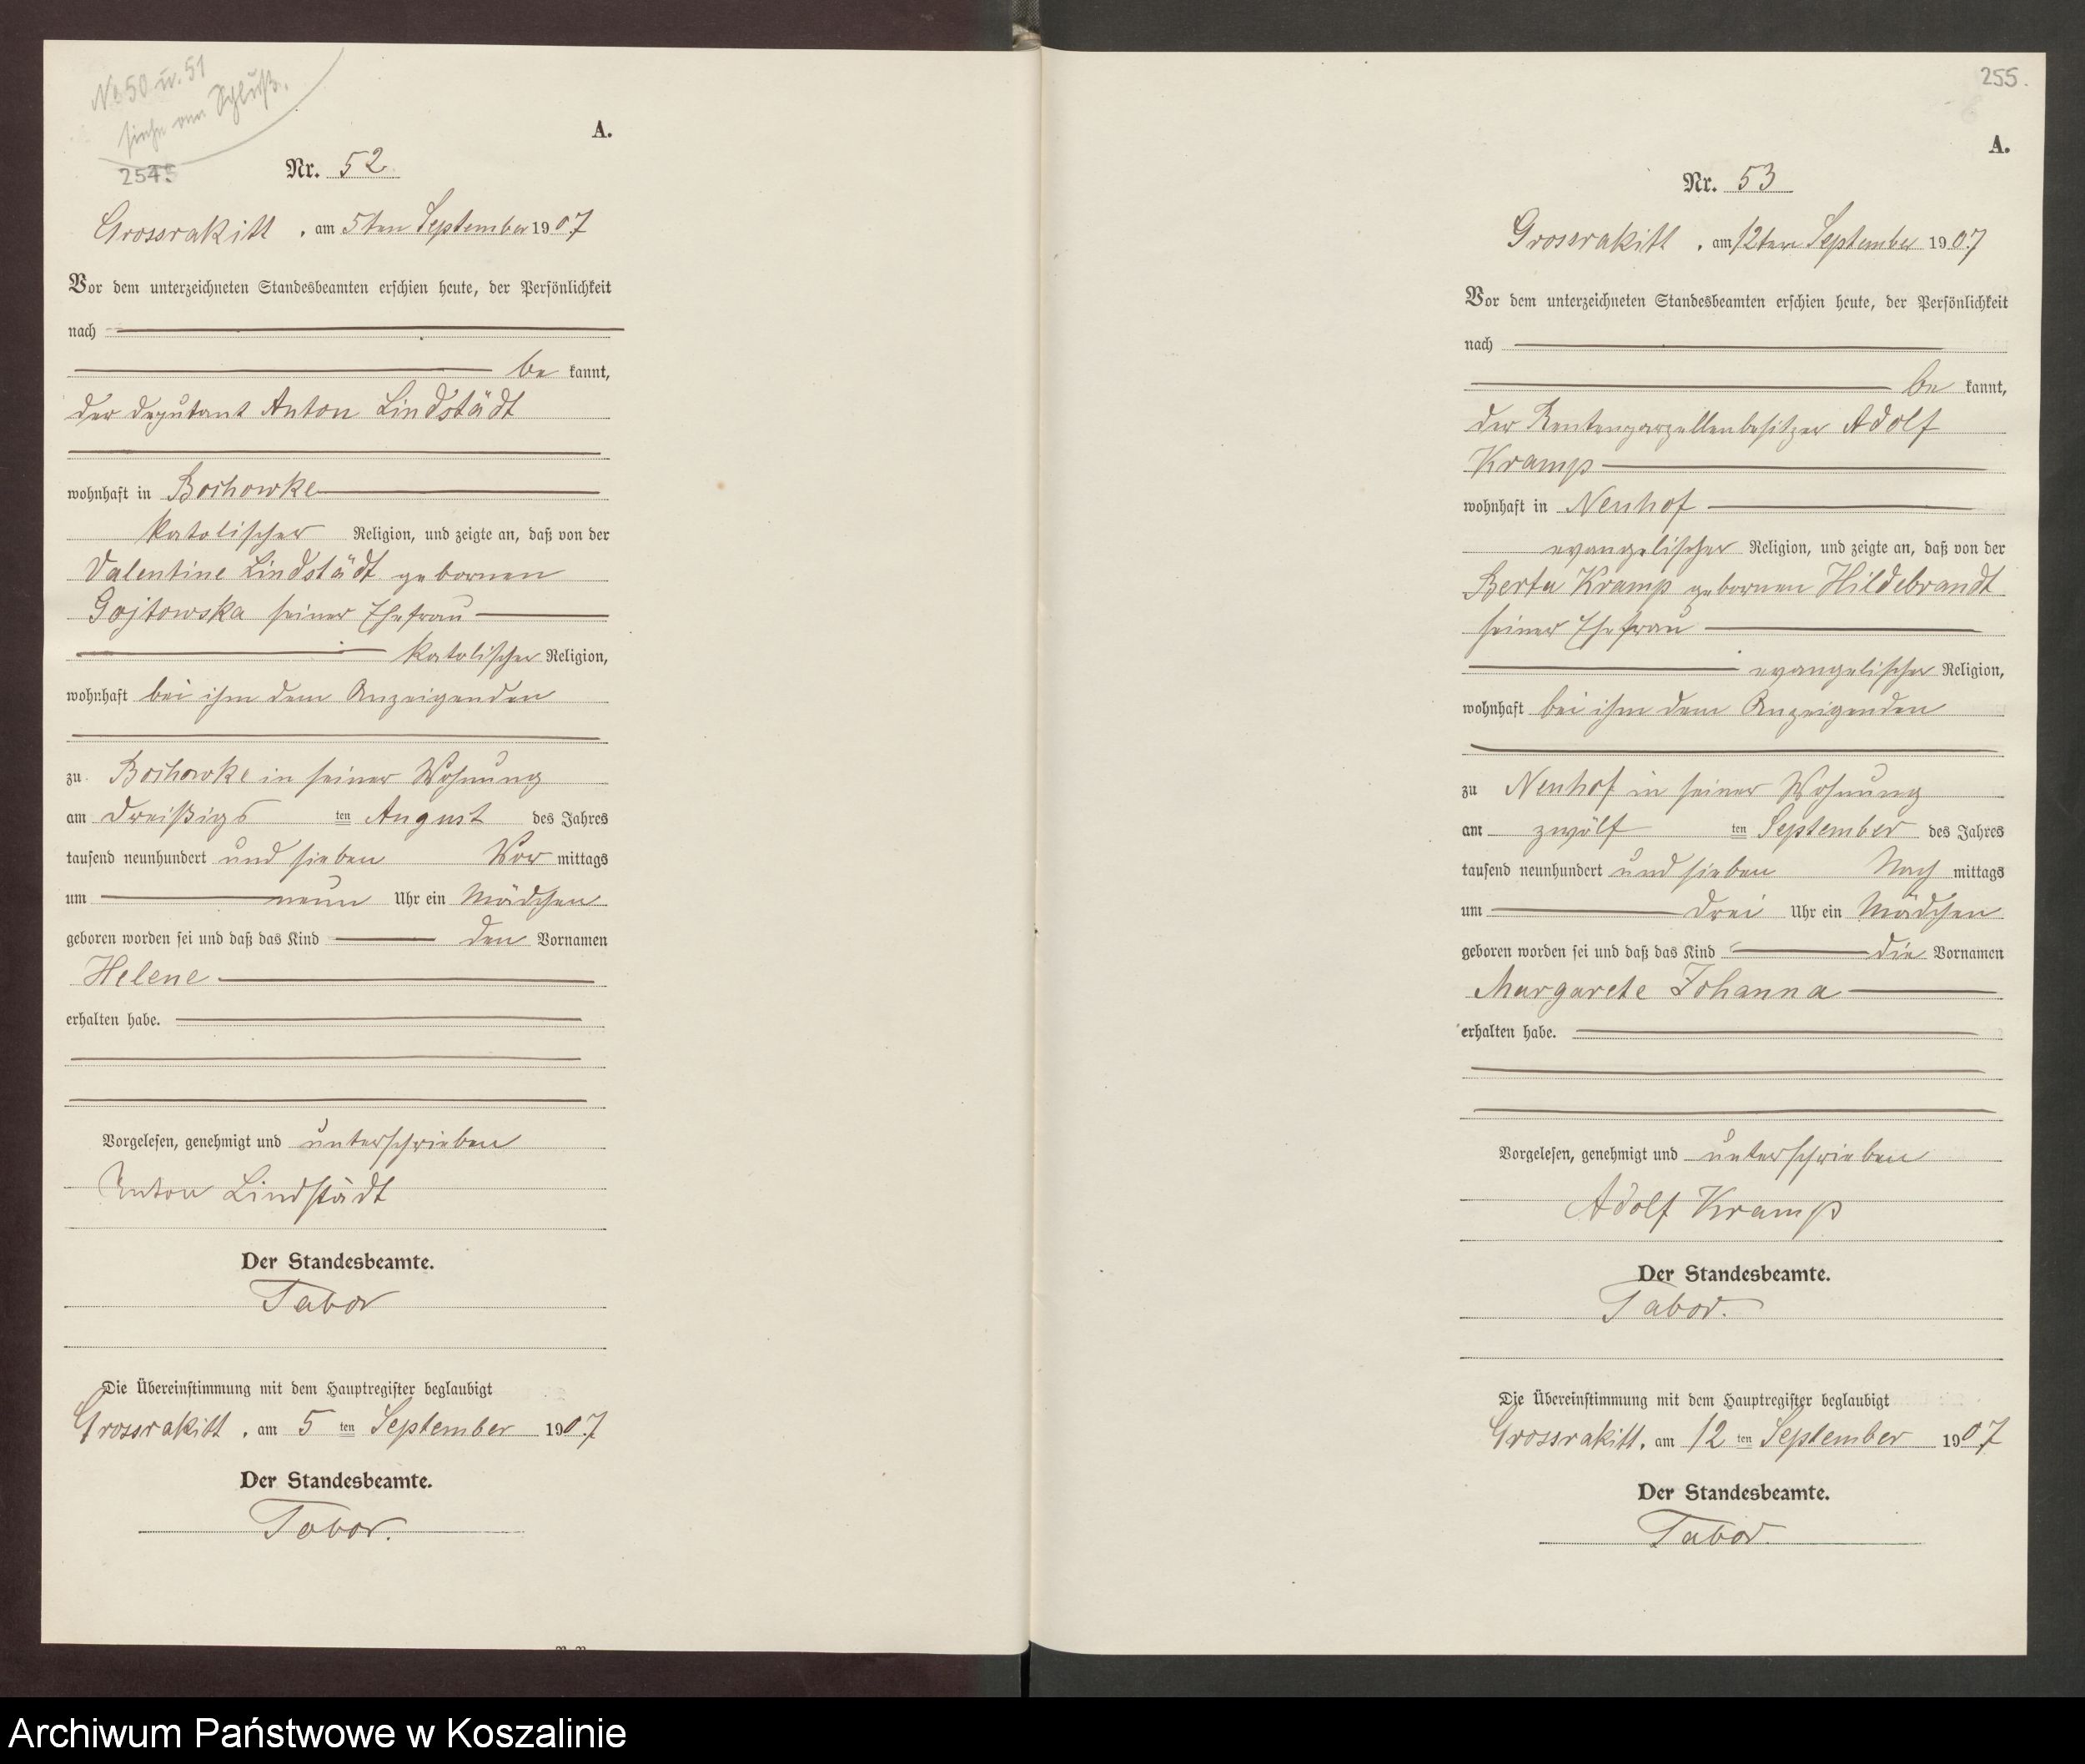 No 50 u. 51
siehe am Schluß.
254
A.
Nr. 52.
Grossrakitt, am 5ten September 1907
Vor dem unterzeichneten Standesbeamten erschien heute, der Persönlichkeit
nach
be kannt,
der Deputant Anton Lindstädt
wohnhaft in Bochowke
katolischer Religion, und zeigte an, daß von der
Valentine Lindstädt gebornen
Gojtowska seiner Ehefrau
katolischer Religion,
wohnhaft bei ihm dem Anzeigenden
zu Bochowke in seiner Wohnung
am dreißigs ten August des Jahres
tausend neunhundert und sieben Vor mittags
um neun Uhr ein Mädchen
geboren worden sei und daß das Kind den Vornamen
Helene
erhalten habe.
Vorgelesen, genehmigt und unterschrieben
Anton Lindstädt
Der Standesbeamte.
Tabor
Die Übereinstimmung mit dem Hauptregister beglaubigt
Grossrakitt, am 5 ten September 1907
Der Standesbeamte.
Tabor.
255.
A.
Nr. 53
Grossrakitt, am 12ten September 1907
Vor dem unterzeichneten Standesbeamten erschien heute, der Persönlichkeit
nach
be kannt,
der Rentenparzellenbesitzer Adolf
Kramp
wohnhaft in Neuhof
evangelischer Religion, und zeigte an, daß von der
Berta Kramp gebornen Hildebrandt
seiner Ehefrau
evangelischer Religion,
wohnhaft bei ihm dem Anzeigenden
zu Neuhof in seiner Wohnung
am zwölf ten September des Jahres
tausend neunhundert und sieben Nach mittags
um drei Uhr ein Mädchen
geboren worden sei und daß das Kind die Vornamen
Margarete Johanna
erhalten habe.
Vorgelesen, genehmigt und unterschrieben
Adolf Kramp
Der Standesbeamte.
Tabor.
Die Übereinstimmung mit dem Hauptregister beglaubigt
Grossrakitt, am 12 ten September 1907
Der Standesbeamte.
Tabor.
Archiwum Państwowe w Koszalinie